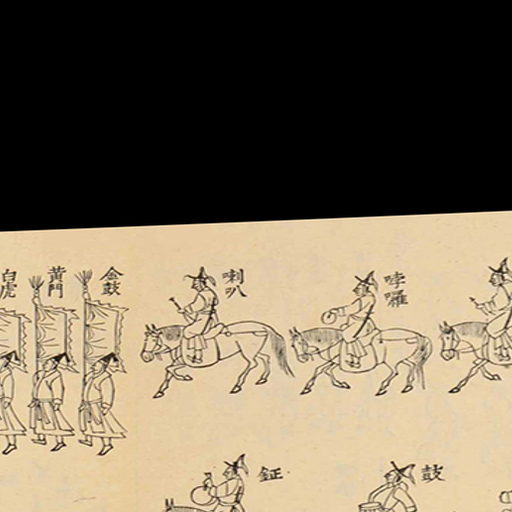 白虎
黄門
金鼓
喇叭
哱囉
鉦
鼓